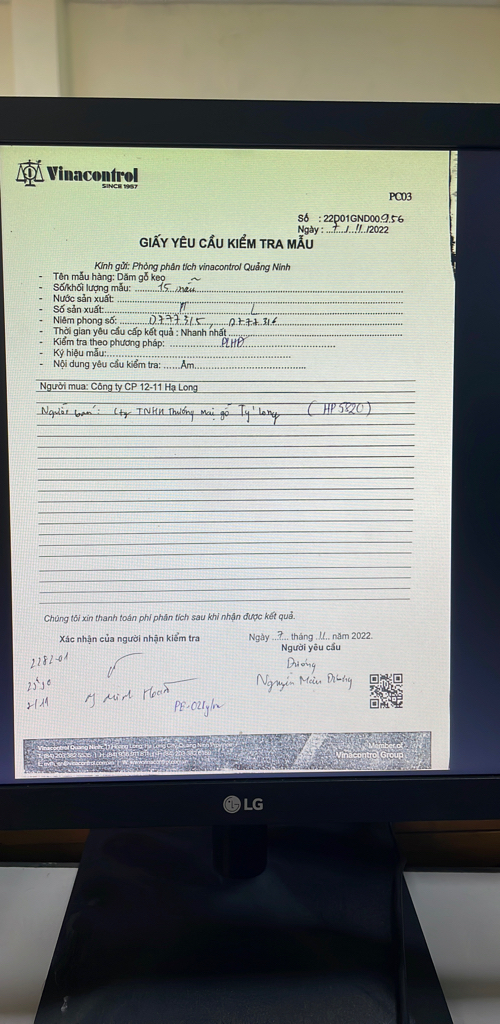 Vinacontrol
SINCE 1957
PC03
Số : 22D01GND00.9.56
Ngày : ..7../..11../2022
GIẤY YÊU CẦU KIỂM TRA MẪU
Kính gửi: Phòng phân tích vinacontrol Quảng Ninh
- Tên mẫu hàng: Dăm gỗ keo
- Số/khối lượng mẫu: 15 mẫu
- Nước sản xuất:
- Số sản xuất:
- Niêm phong số: 0777315, 0777316
- Thời gian yêu cầu cấp kết quả : Nhanh nhất
- Kiểm tra theo phương pháp: PLHĐ
- Ký hiệu mẫu:
- Nội dung yêu cầu kiểm tra: Ẩm
Người mua: Công ty CP 12-11 Hạ Long
Người bán: Cty TNHH Thương Mại gỗ Tý Long (HP5820)
Chúng tôi xin thanh toán phí phân tích sau khi nhận được kết quả.
Xác nhận của người nhận kiểm tra
Ngày ..7.. tháng .11.. năm 2022.
Người yêu cầu
Dương
2282-01
Vinacontrol Quang Ninh: 11 Hoang Long, Ha Long City, Quang Ninh, Vietnam
Member of
Vinacontrol Group
LG